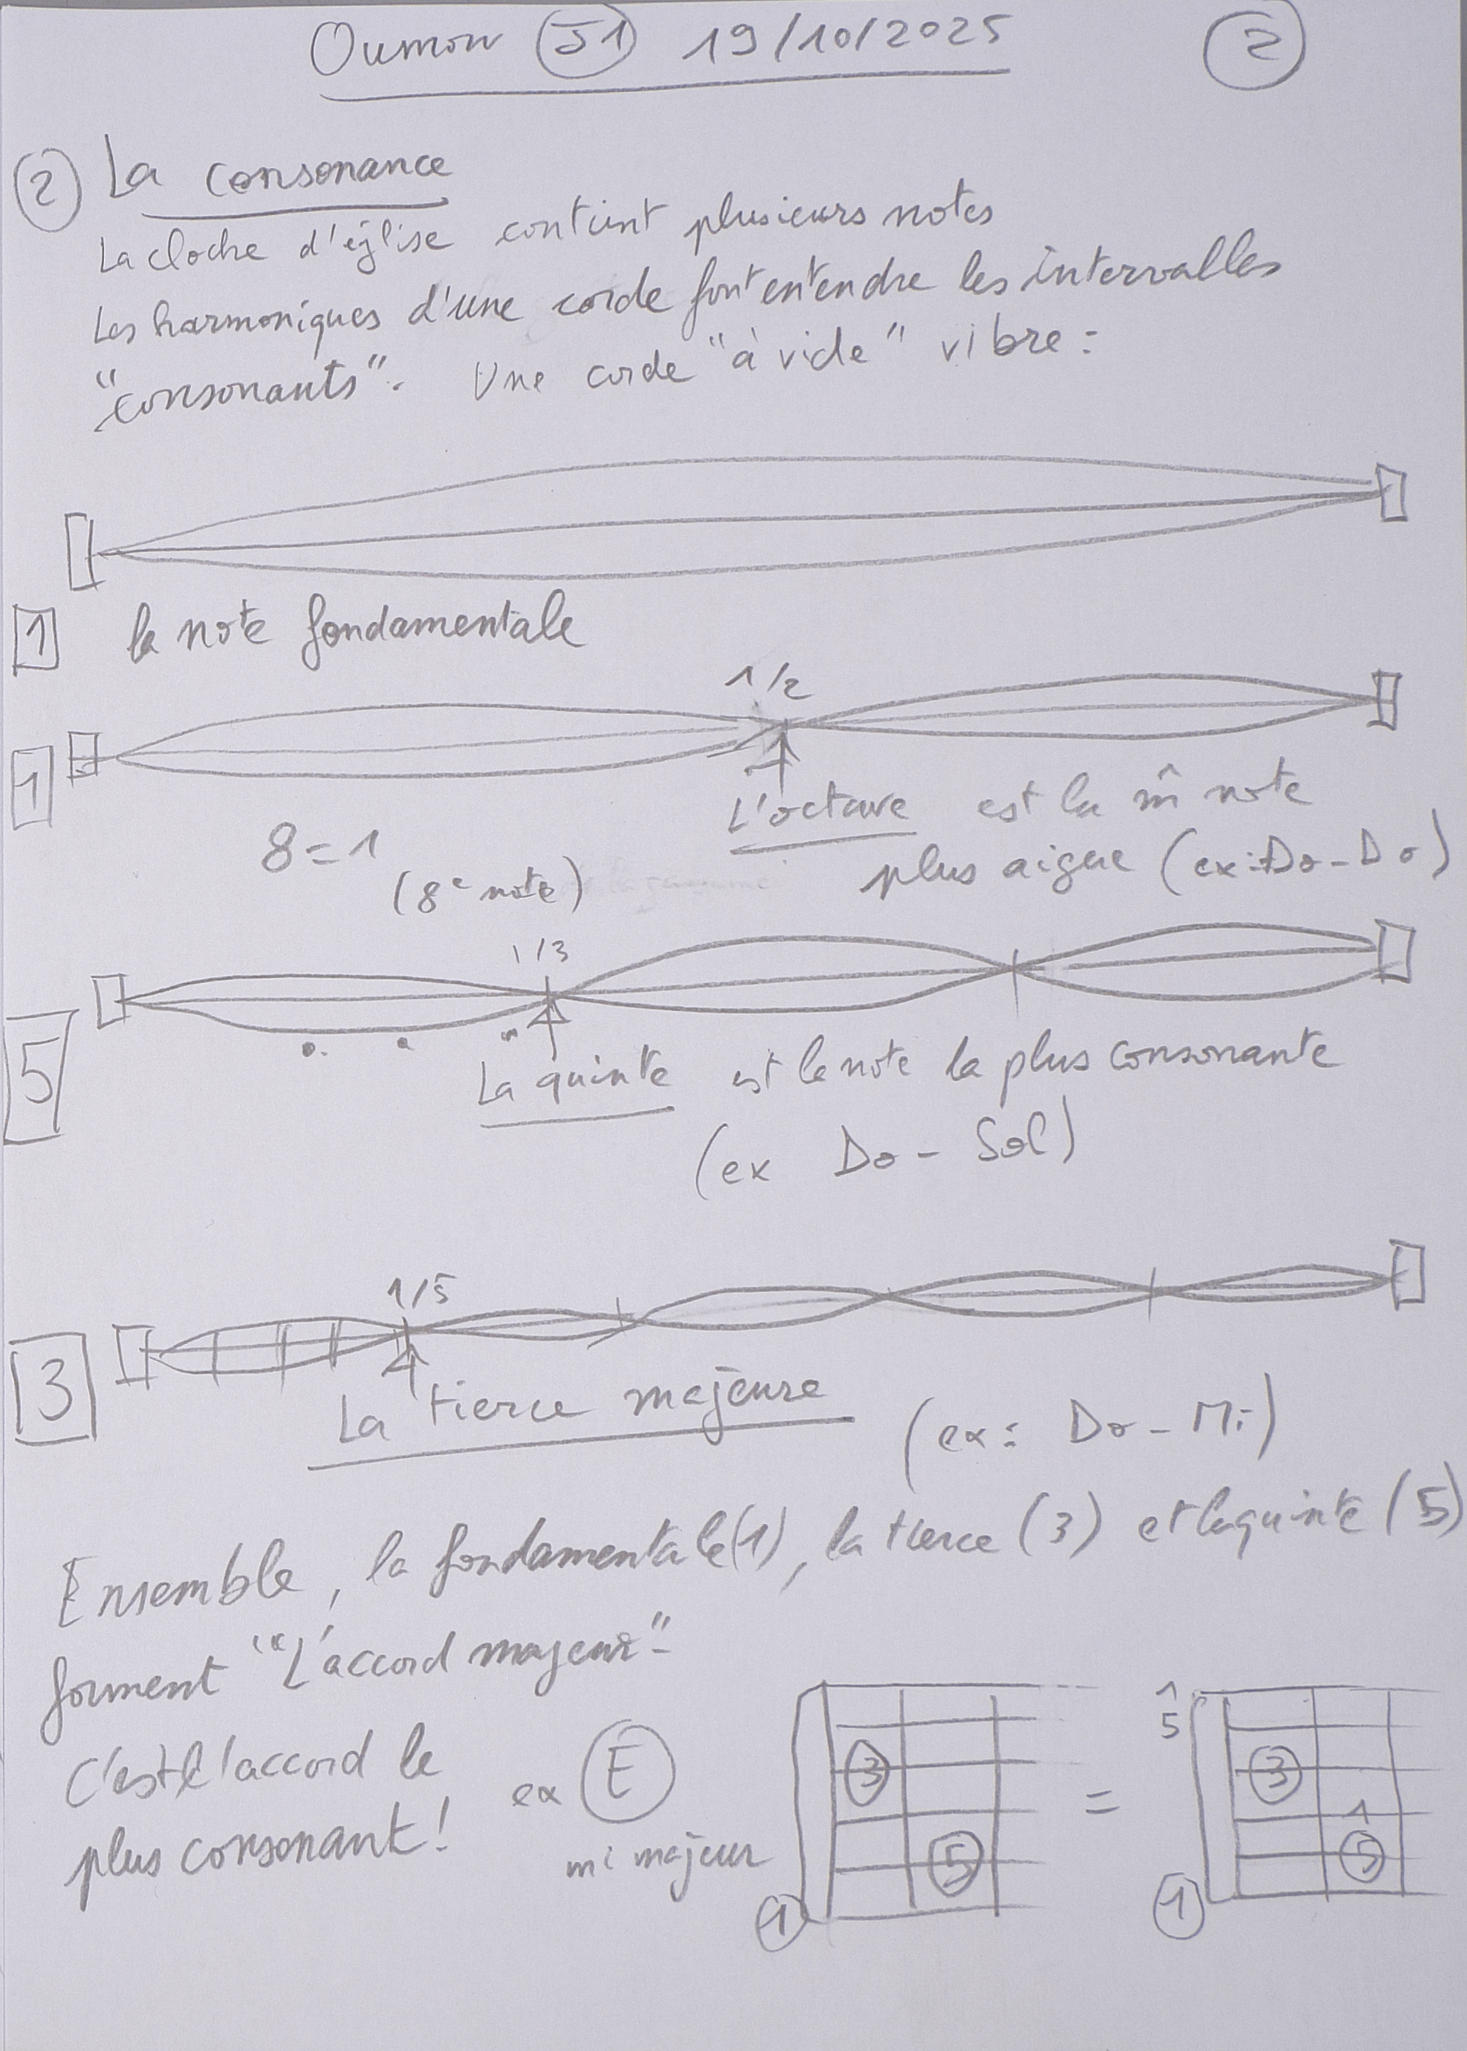 Oumou J1 19/10/2025 2
2 La consonance
La cloche d'église contient plusieurs notes
Les harmoniques d'une corde font entendre les intervalles
"consonants". Une corde "à vide" vibre :
1 la note fondamentale
1/2
1
L'octave est la m̂ note
8=1
plus aigue (ex: Do-Do)
(8e note)
1/3
5
La quinte est la note la plus consonante
(ex Do - Sol)
1/5
3
La tierce majeure (ex: Do - Mi)
Ensemble, la fondamentale (1), la tierce (3) et la quinte (5)
forment "L'accord majeur".
C'est l'accord le
plus consonant!
ex E
mi majeur
3
5
1
=
1
5
3
1
5
1